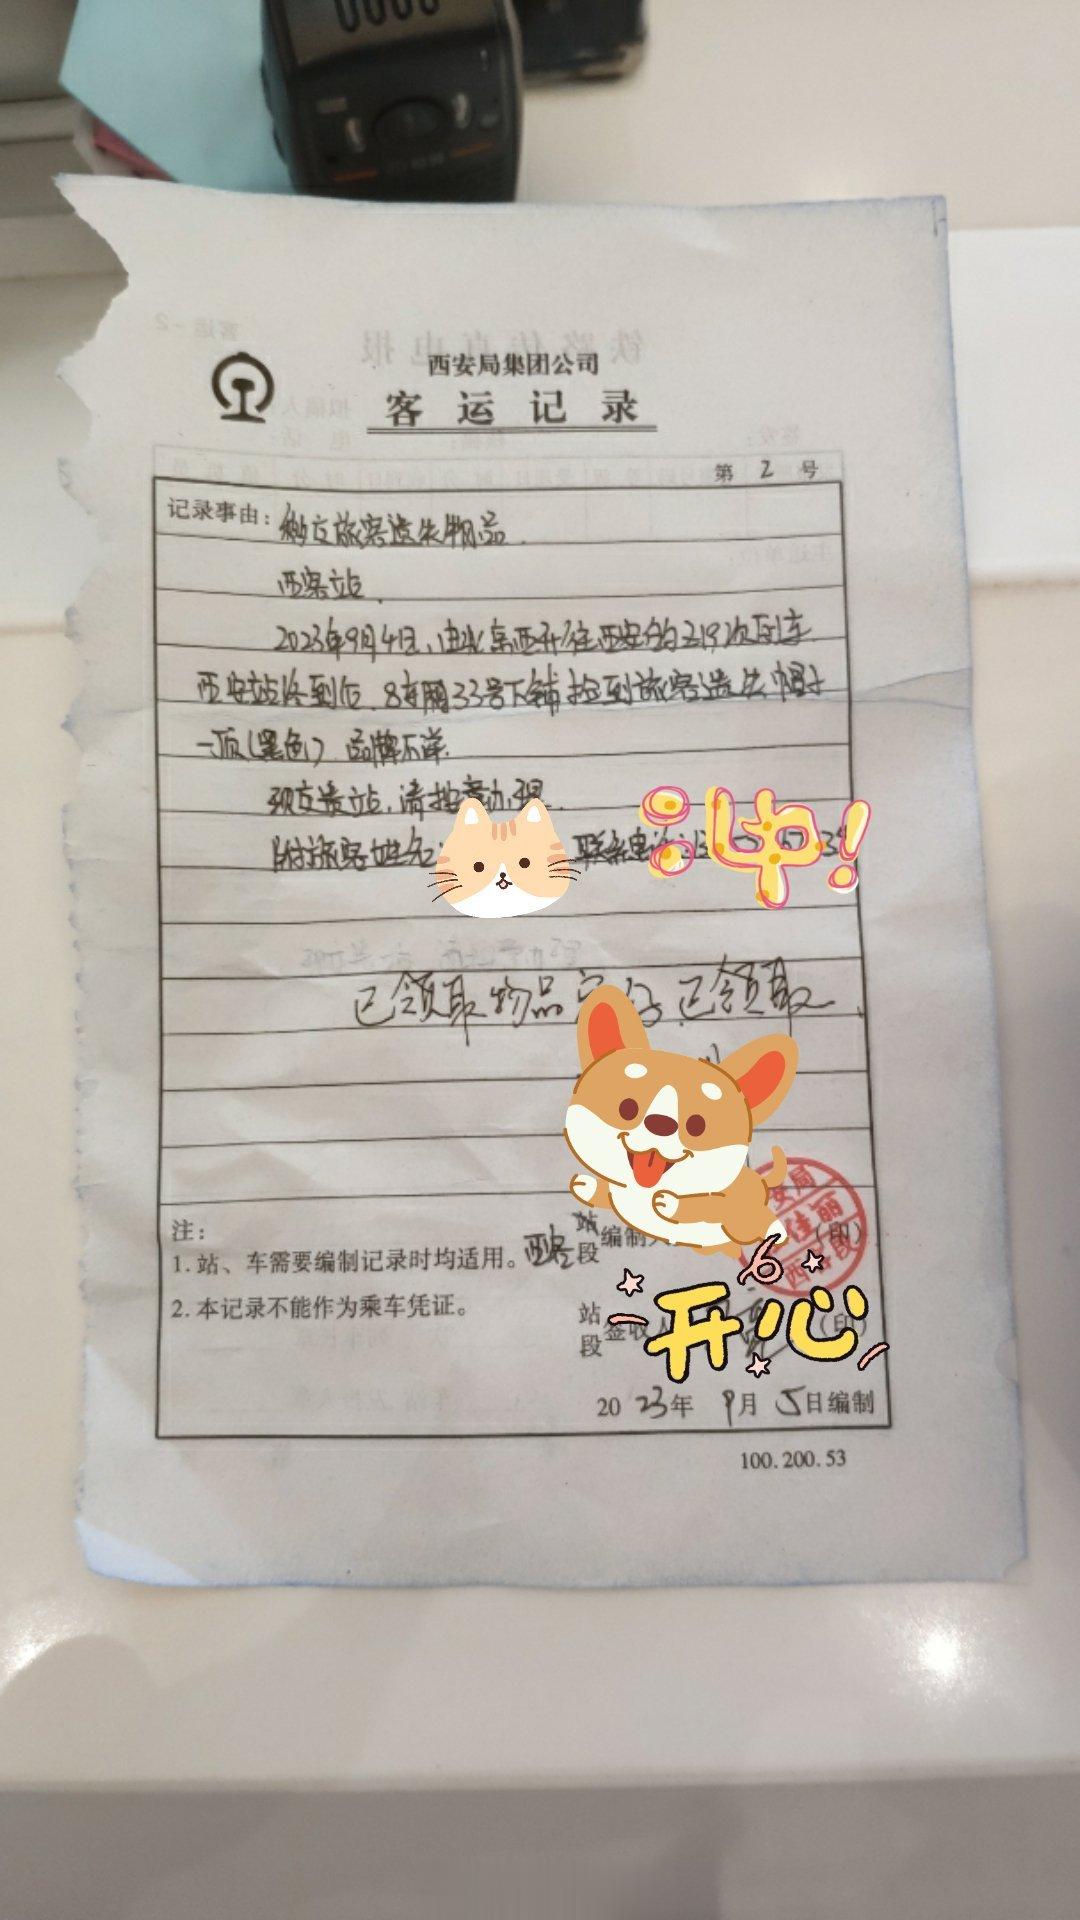 西安局集团公司
客运记录
第 2 号
记录事由：移交旅客遗失物品.
西安站.
2023年9月4日,由北京西开往西安的Z19次列车
西安站终到后,8车厢33号下铺捡到旅客遗失帽子
一顶(黑色),品牌不详.
现交贵站,请按章办理.
附旅客姓名 联系电话:
冲!
已领取 物品完好 已领取
注：
1.站、车需要编制记录时均适用。 站段 编制人 (印)
2.本记录不能作为乘车凭证。 站段 签收人 (印)
安局
佳丽
开心
2023年 9月 5日编制
100.200.53